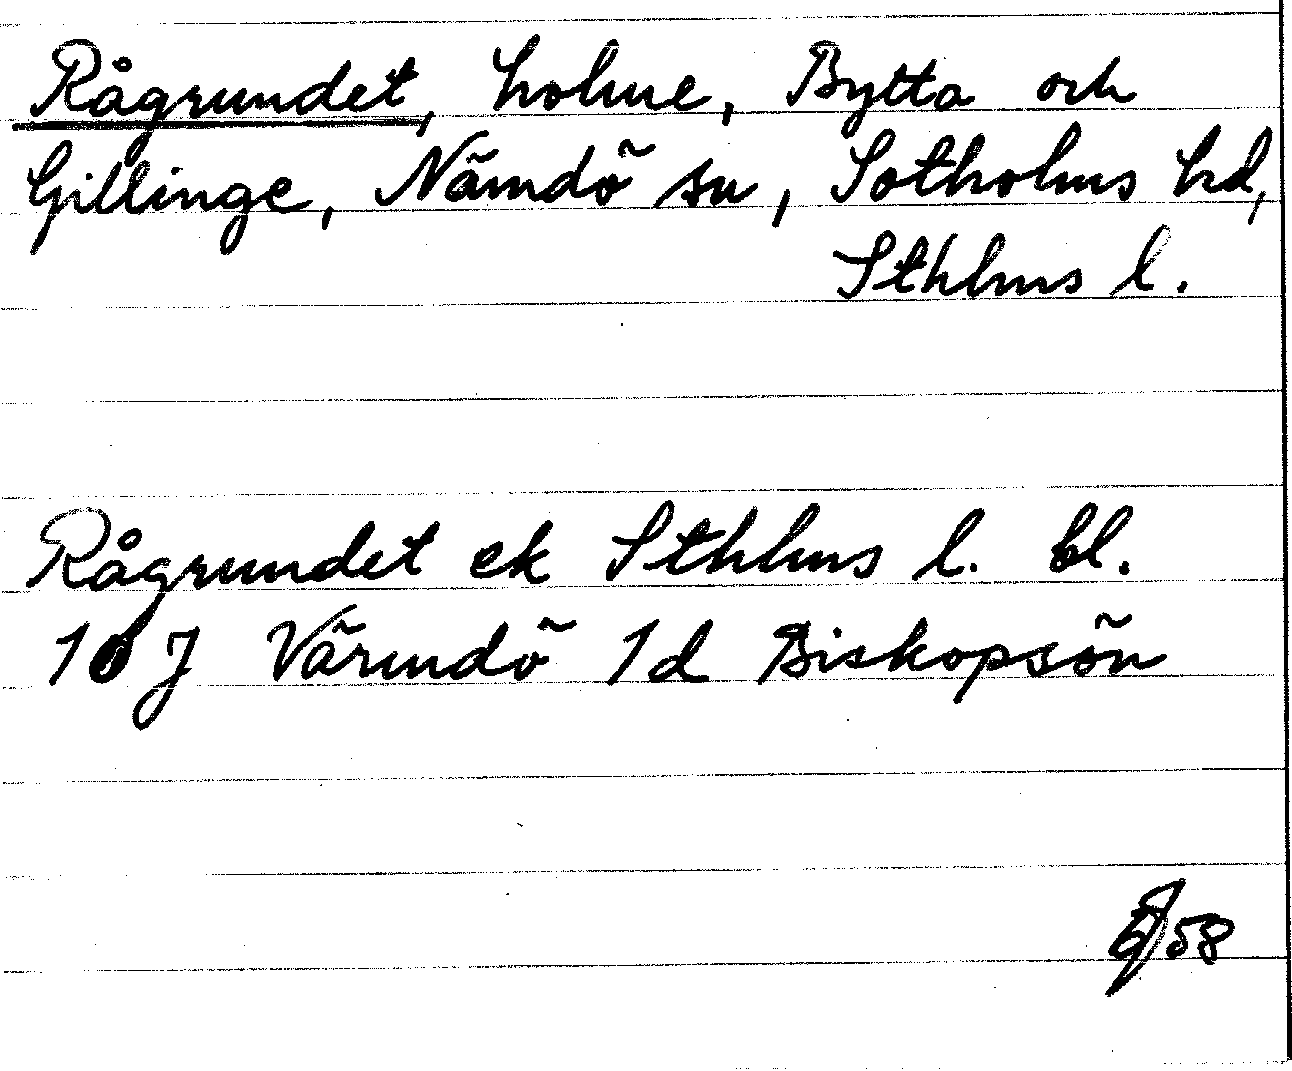 Rågrundet, holme, Bytta och
Gillinge, Nämdö sn, Sotholms hd,
Sthlms l.
Rågrundet ek Sthlms l. bl.
10 J Värmdö 1d Biskopsön
58